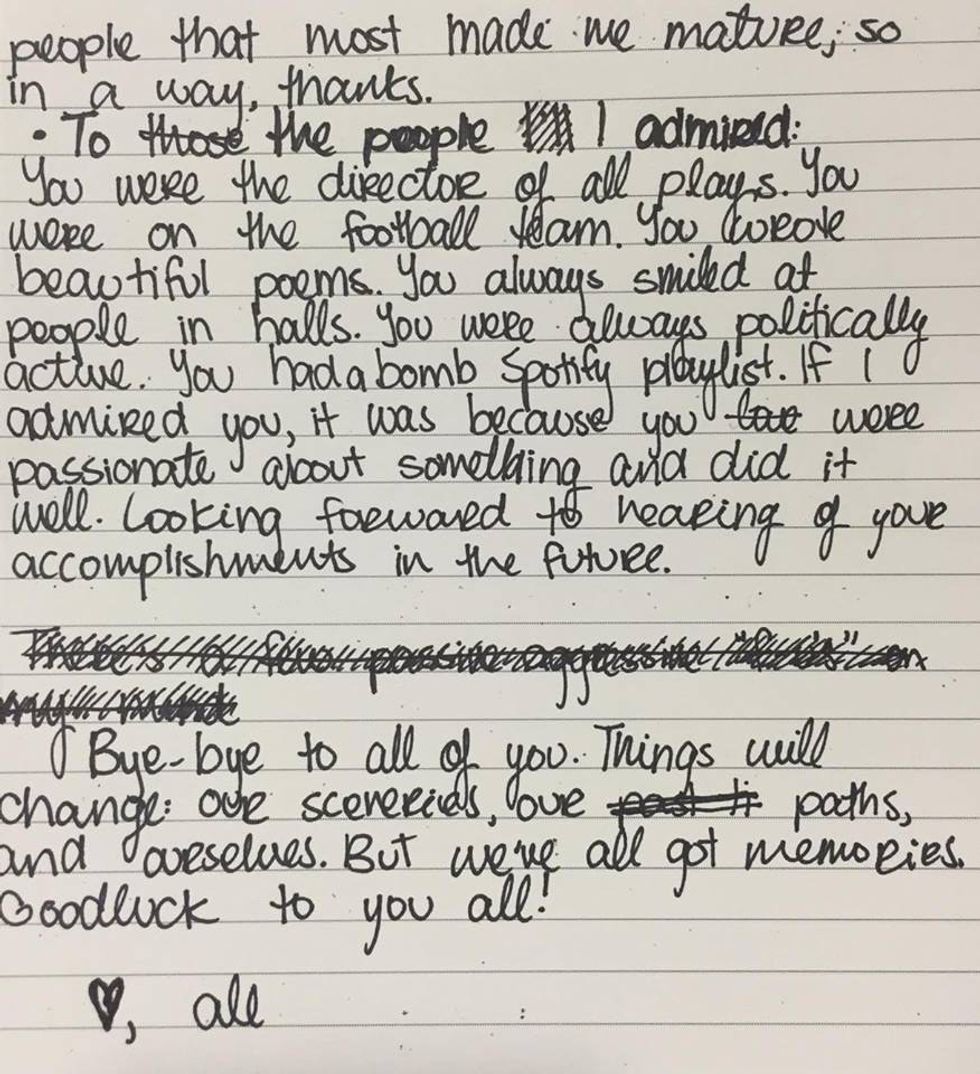 people that most made me mature, so
in a way, thanks.
• To those the people I admired:
You were the director of all plays. You
were on the football team. You wrote
beautiful poems. You always smiled at
people in halls. You were always politically
active. You had a bomb Spotify playlist. If I
admired you, it was because you were
passionate about something and did it
well. Looking forward to hearing of your
accomplishments in the future.
There's a few passive aggressive
my
Bye-bye to all of you. Things will
change: our sceneries, our paths,
and ourselves. But we've all got memories.
Goodluck to you all!
♥, ale